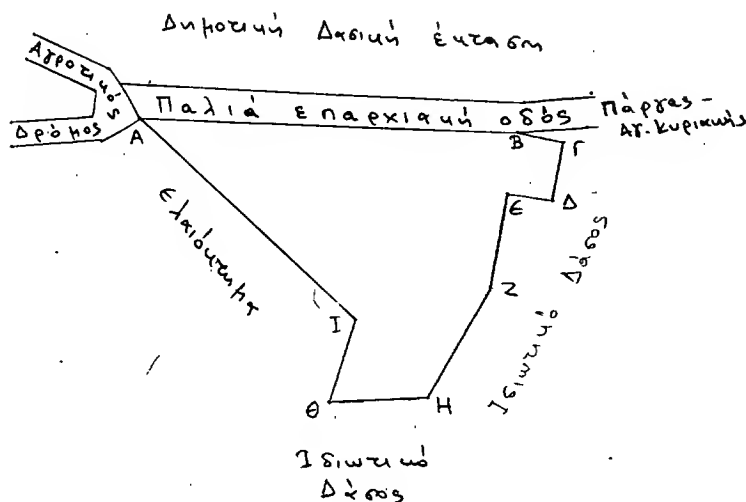 Δημοτική Δασική έκταση
Αγροτικός
Δρόμος
Παλιά επαρχιακή οδός
Πάργας -
Αγ. Κυριακής
Α
Β
Γ
Δ
Ε
Ζ
Η
Θ
Ι
Ελαιόκτημα
Ιδιωτικό Δάσος
Ιδιωτικό
Δάσος